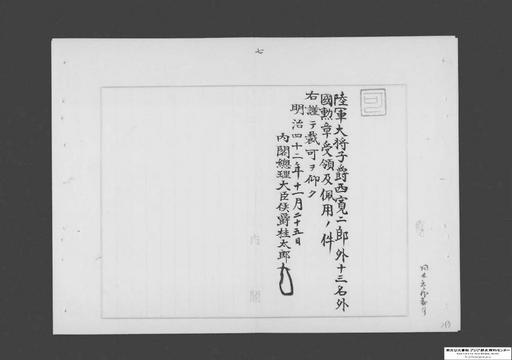 七
陸軍大将子爵西寛二郎外十三名外
國勲章受領及佩用ノ件
右謹テ裁可ヲ仰ク
明治四十二年十一月二十五日
内閣總理大臣侯爵桂太郎
内閣